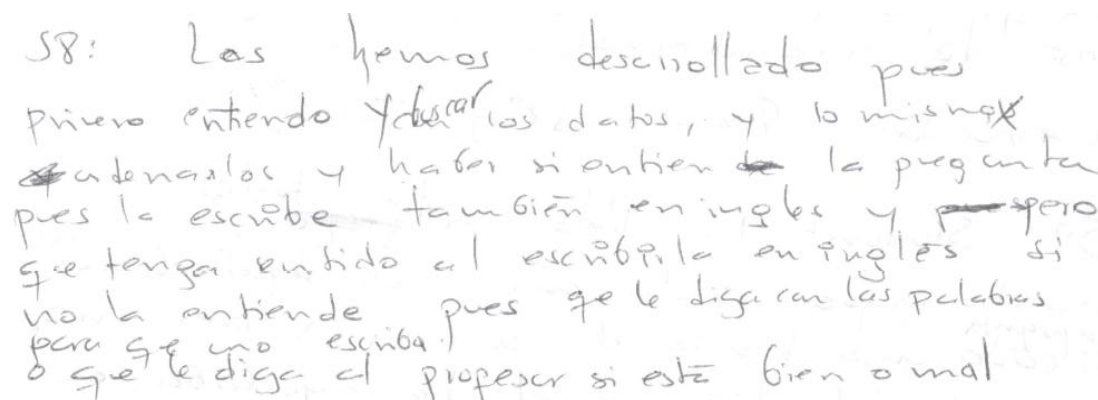 S8: Las hemos desarrollado pues
primero entiendo y buscar los datos, y lo mismo
ordenarlos y haber si entien la pregunta
pues la escribe también en ingles y pero
que tenga sentido al escribirla en inglés si
no la entiende pues qe le diga con las palabras
para qe uno escriba
o que le diga al profesor si está bien o mal